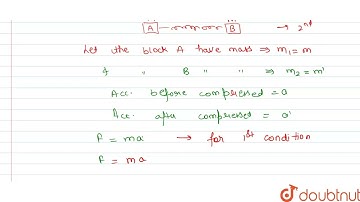 A B → 2nd
Let the block A have mass ⇒ m₁ = m
" " B " " ⇒ m₂ = m'
Acc. before compressed = a
Acc. after compressed = a'
F = ma → for 1st condition
F = ma
doubtnut